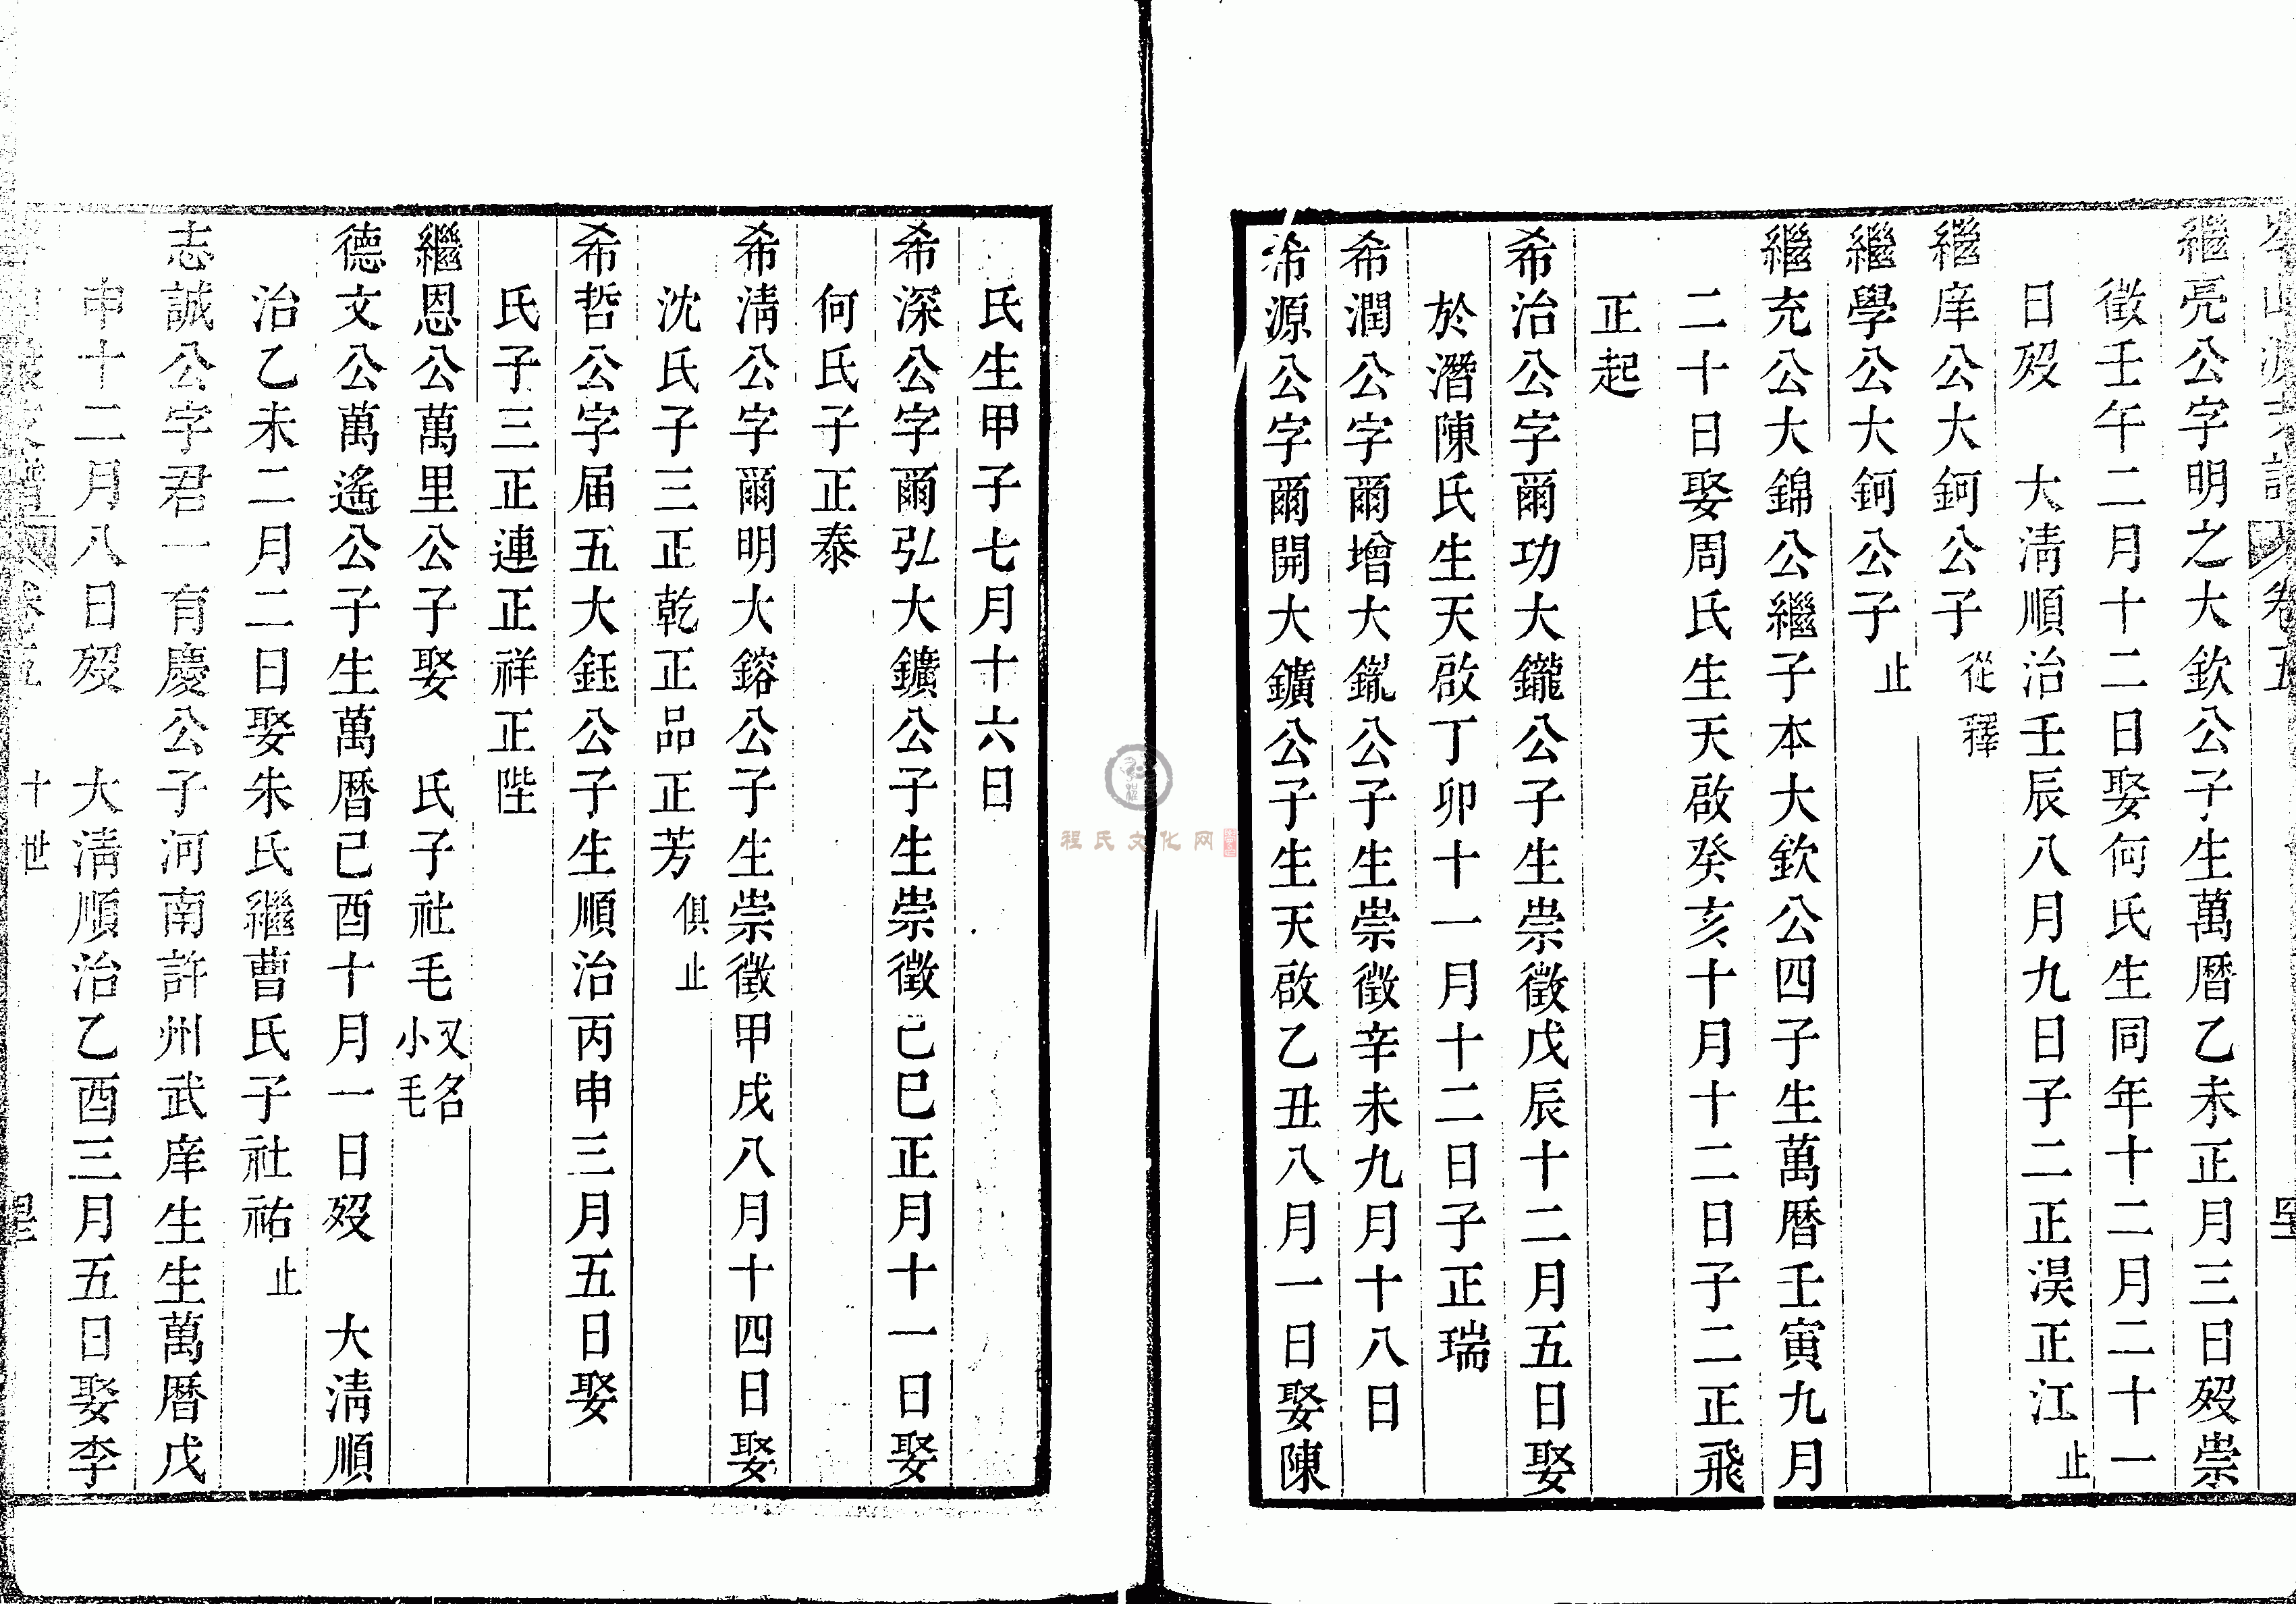 卷五
繼亮公字明之大欽公子生萬曆乙未正月三日歿崇
徵壬午二月十二日娶何氏生同年十二月二十一
日歿　大清順治壬辰八月九日子二正淏正江止
繼庠公大鈳公子從釋
繼學公大鈳公子止
繼充公大錦公繼子本大欽公四子生萬曆壬寅九月
二十日娶周氏生天啟癸亥十月十二日子二正飛
正起
希治公字爾功大鑨公子生崇徵戊辰十二月五日娶
於潛陳氏生天啟丁卯十一月十二日子正瑞
希潤公字爾增大𨫪公子生崇徵辛未九月十八日
希源公字爾開大鑛公子生天啟乙丑八月一日娶陳
氏生甲子七月十六日
希深公字爾弘大鑛公子生崇徵己巳正月十一日娶
何氏子正泰
希淸公字爾明大鎔公子生崇徵甲戌八月十四日娶
沈氏子三正乾正品正芳俱止
希哲公字届五大鈺公子生順治丙申三月五日娶
氏子三正連正祥正陛
繼恩公萬里公子娶　氏子社毛又名小毛
德文公萬遙公子生萬曆己酉十月一日歿　大淸順
治乙未二月二日娶朱氏繼曹氏子社祐止
志誠公字君一有慶公子河南許州武庠生生萬曆戊
申十二月八日歿　大淸順治乙酉三月五日娶李
卷五　十世
程氏文化网